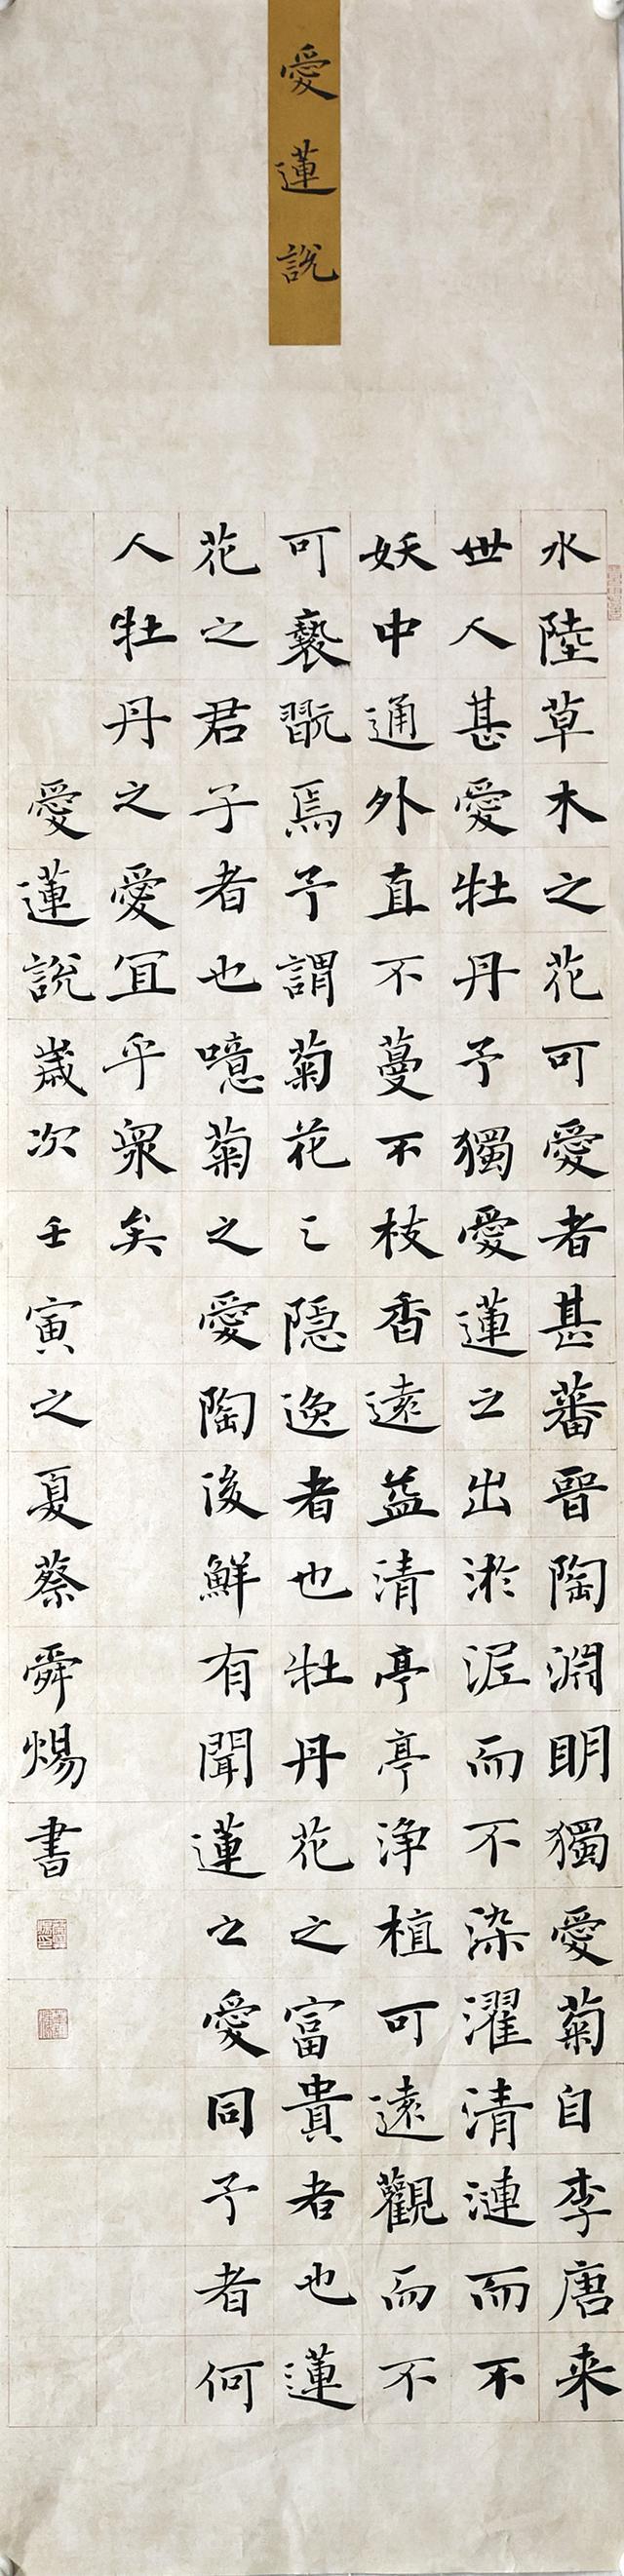 愛蓮說
水陸草木之花可愛者甚蕃晉陶淵明獨愛菊自李唐来
世人甚愛牡丹予獨愛蓮之出淤泥而不染濯清漣而不
妖中通外直不蔓不枝香遠益清亭亭淨植可遠觀而不
可褻翫焉予謂菊花之隱逸者也牡丹花之富貴者也蓮
花之君子者也噫菊之愛陶後鮮有聞蓮之愛同予者何
人牡丹之愛宜乎衆矣
愛蓮說歲次壬寅之夏蔡舜煬書